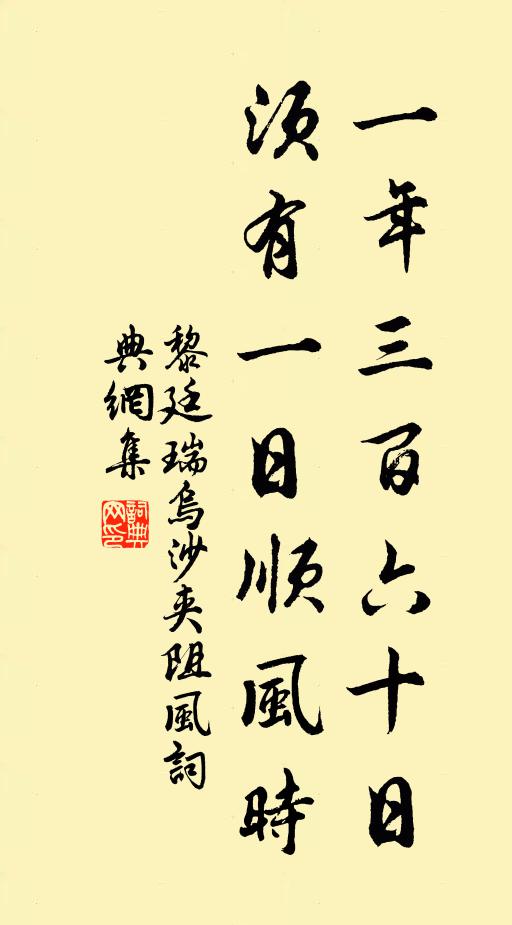 一年三百六十日
須有一日順風時
黎廷瑞烏沙夾阻風詞
典網集
詞典
网印